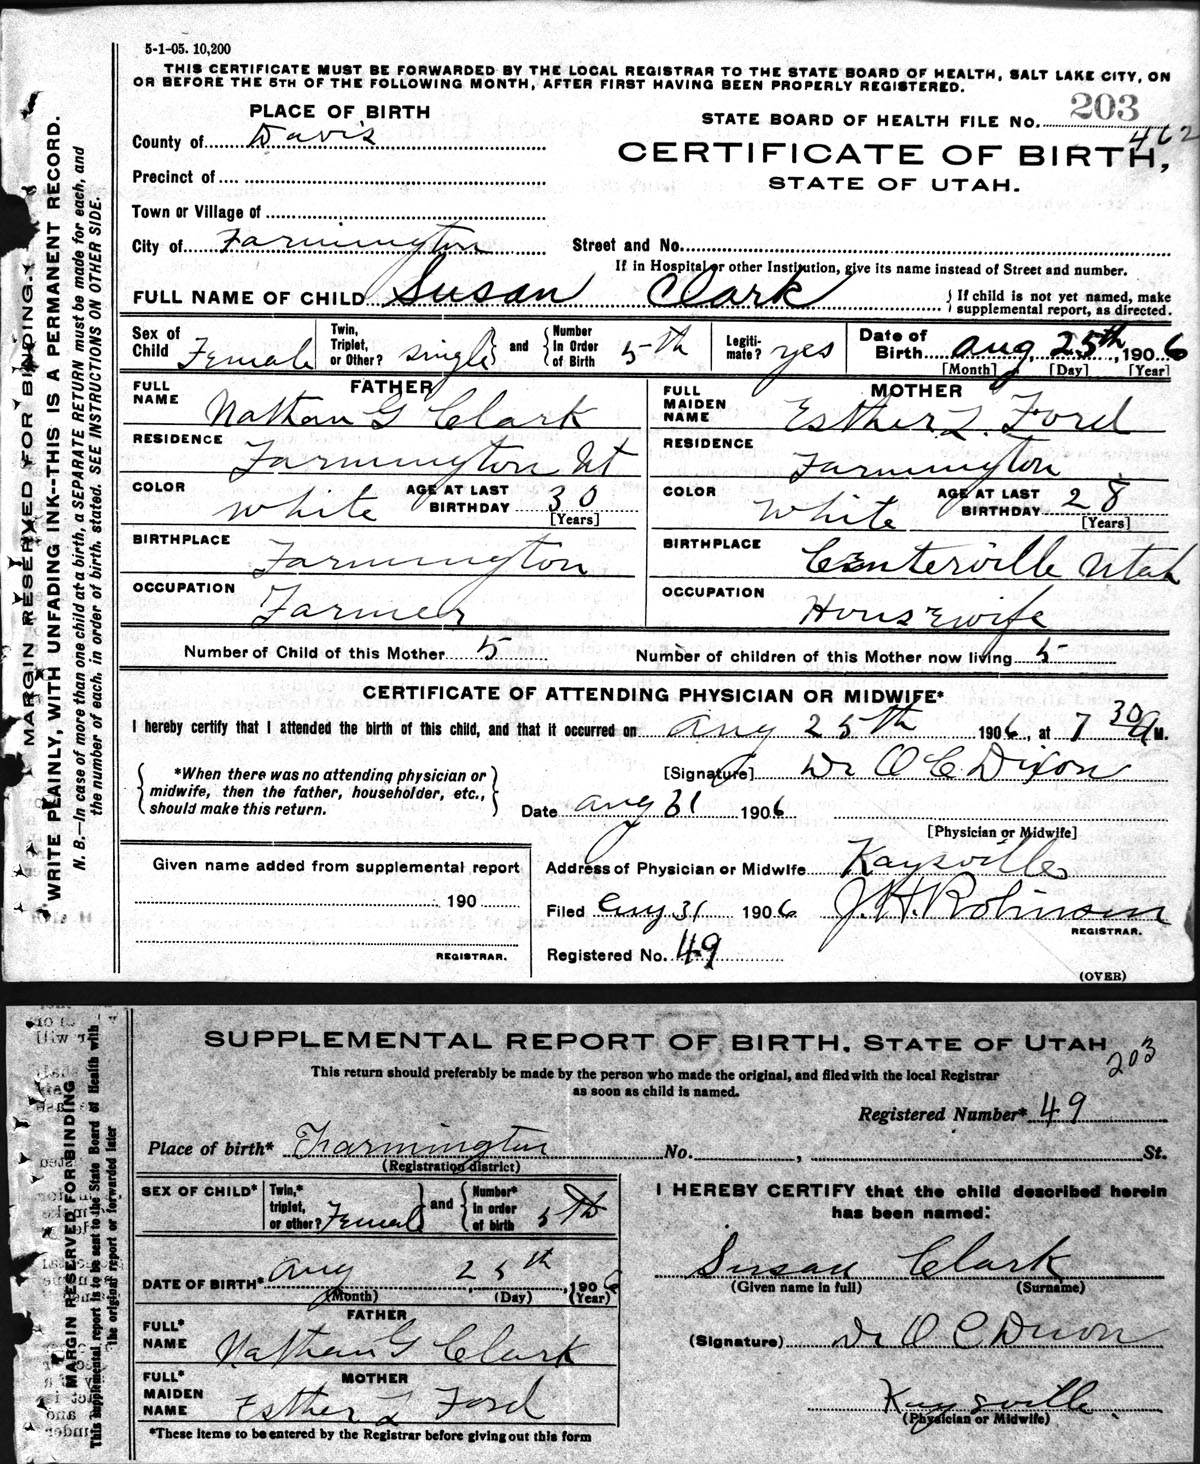 5-1-05. 10,200
THIS CERTIFICATE MUST BE FORWARDED BY THE LOCAL REGISTRAR TO THE STATE BOARD OF HEALTH, SALT LAKE CITY, ON
OR BEFORE THE 5TH OF THE FOLLOWING MONTH, AFTER FIRST HAVING BEEN PROPERLY REGISTERED.
PLACE OF BIRTH
STATE BOARD OF HEALTH FILE No. 203
462
County of Davis
CERTIFICATE OF BIRTH,
STATE OF UTAH.
Precinct of
Town or Village of
City of Farmington Street and No.
If in Hospital or other Institution, give its name instead of Street and number.
FULL NAME OF CHILD Susan Clark { If child is not yet named, make supplemental report, as directed.
Sex of Child Female Twin, Triplet, or Other? single and Number In Order of Birth 5th Legiti-mate? yes Date of Birth Aug 25th, 1906
[Month] [Day] [Year]
FATHER MOTHER
FULL NAME Nathan G Clark FULL MAIDEN NAME Esther L. Ford
RESIDENCE Farmington Ut RESIDENCE Farmington
COLOR White AGE AT LAST BIRTHDAY 30 [Years] COLOR White AGE AT LAST BIRTHDAY 28 [Years]
BIRTHPLACE Farmington BIRTHPLACE Centerville Utah
OCCUPATION Farmer OCCUPATION Housewife
Number of Child of this Mother 5 Number of children of this Mother now living 5
CERTIFICATE OF ATTENDING PHYSICIAN OR MIDWIFE*
I hereby certify that I attended the birth of this child, and that it occurred on Aug 25th 1906, at 7 30 A M.
*When there was no attending physician or midwife, then the father, householder, etc., should make this return.
[Signature] Dr O C Dixon
Date Aug 31 1906
[Physician or Midwife]
Given name added from supplemental report
190
REGISTRAR.
Address of Physician or Midwife Kaysville
Filed Aug 31 1906 J. H. Robinson
REGISTRAR.
Registered No. 49
(OVER)
MARGIN RESERVED FOR BINDING.
WRITE PLAINLY, WITH UNFADING INK--THIS IS A PERMANENT RECORD.
N. B.—In case of more than one child at a birth, a SEPARATE RETURN must be made for each, and
the number of each, in order of birth, stated. SEE INSTRUCTIONS ON OTHER SIDE.
SUPPLEMENTAL REPORT OF BIRTH, STATE OF UTAH
203
This return should preferably be made by the person who made the original, and filed with the local Registrar
as soon as child is named.
Registered Number* 49
Place of birth* Farmington No. , St.
(Registration district)
SEX OF CHILD* Twin,* triplet, or other? Female and Number* in order of birth 5th
I HEREBY CERTIFY that the child described herein
has been named:
DATE OF BIRTH* Aug 25th, 1906
(Month) (Day) (Year)
Susan Clark
(Given name in full) (Surname)
FATHER
FULL* NAME Nathan G Clark
(Signature) Dr O C Dixon
MOTHER
FULL* MAIDEN NAME Esther L Ford
Kaysville
(Physician or Midwife)
*These items to be entered by the Registrar before giving out this form
MARGIN RESERVED FOR BINDING
This supplemental report is to be sent to the State Board of Health with
the original report or forwarded later